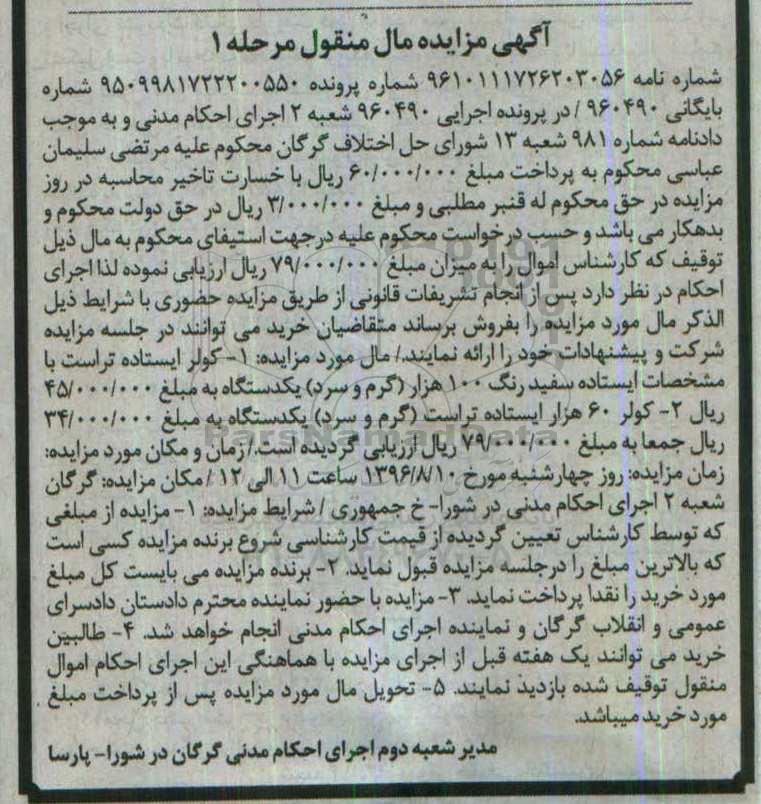 آگهی مزایده مال منقول مرحله ۱
شماره نامه ۹۶۱۰۱۱۱۷۲۶۲۰۳۰۵۶ شماره پرونده ۹۵۰۹۹۸۱۷۲۲۲۰۰۵۵۰ شماره
بایگانی ۹۶۰۴۹۰ / در پرونده اجرایی ۹۶۰۴۹۰ شعبه ۲ اجرای احکام مدنی و به موجب
دادنامه شماره ۹۸۱ شعبه ۱۳ شورای حل اختلاف گرگان محکوم علیه مرتضی سلیمان
عباسی محکوم به پرداخت مبلغ ۶۰/۰۰۰/۰۰۰ ریال با خسارت تاخیر محاسبه در روز
مزایده در حق محکوم له قنبر مطلبی و مبلغ ۳/۰۰۰/۰۰۰ ریال در حق دولت محکوم و
بدهکار می باشد و حسب درخواست محکوم علیه درجهت استیفای محکوم به مال ذیل
توقیف که کارشناس اموال را به میزان مبلغ ۷۹/۰۰۰/۰۰۰ ریال ارزیابی نموده لذا اجرای
احکام در نظر دارد پس از انجام تشریفات قانونی از طریق مزایده حضوری با شرایط ذیل
الذکر مال مورد مزایده را بفروش برساند متقاضیان خرید می توانند در جلسه مزایده
شرکت و پیشنهادات خود را ارائه نمایند./ مال مورد مزایده: ۱- کولر ایستاده تراست با
مشخصات ایستاده سفید رنگ ۱۰۰ هزار (گرم و سرد) یکدستگاه به مبلغ ۴۵/۰۰۰/۰۰۰
ریال ۲- کولر ۶۰ هزار ایستاده تراست (گرم و سرد) یکدستگاه به مبلغ ۳۴/۰۰۰/۰۰۰
ریال جمعا به مبلغ ۷۹/۰۰۰/۰۰۰ ریال ارزیابی گردیده است./ زمان و مکان مورد مزایده:
زمان مزایده: روز چهارشنبه مورخ ۱۳۹۶/۸/۱۰ ساعت ۱۱ الی ۱۲ / مکان مزایده: گرگان
شعبه ۲ اجرای احکام مدنی در شورا- خ جمهوری / شرایط مزایده: ۱- مزایده از مبلغی
که توسط کارشناس تعیین گردیده از قیمت کارشناسی شروع برنده مزایده کسی است
که بالاترین مبلغ را درجلسه مزایده قبول نماید. ۲- برنده مزایده می بایست کل مبلغ
مورد خرید را نقدا پرداخت نماید. ۳- مزایده با حضور نماینده محترم دادستان دادسرای
عمومی و انقلاب گرگان و نماینده اجرای احکام مدنی انجام خواهد شد. ۴- طالبین
خرید می توانند یک هفته قبل از اجرای مزایده با هماهنگی این اجرای احکام اموال
منقول توقیف شده بازدید نمایند. ۵- تحویل مال مورد مزایده پس از پرداخت مبلغ
مورد خرید میباشد.
مدیر شعبه دوم اجرای احکام مدنی گرگان در شورا- پارسا
ParsNamadData